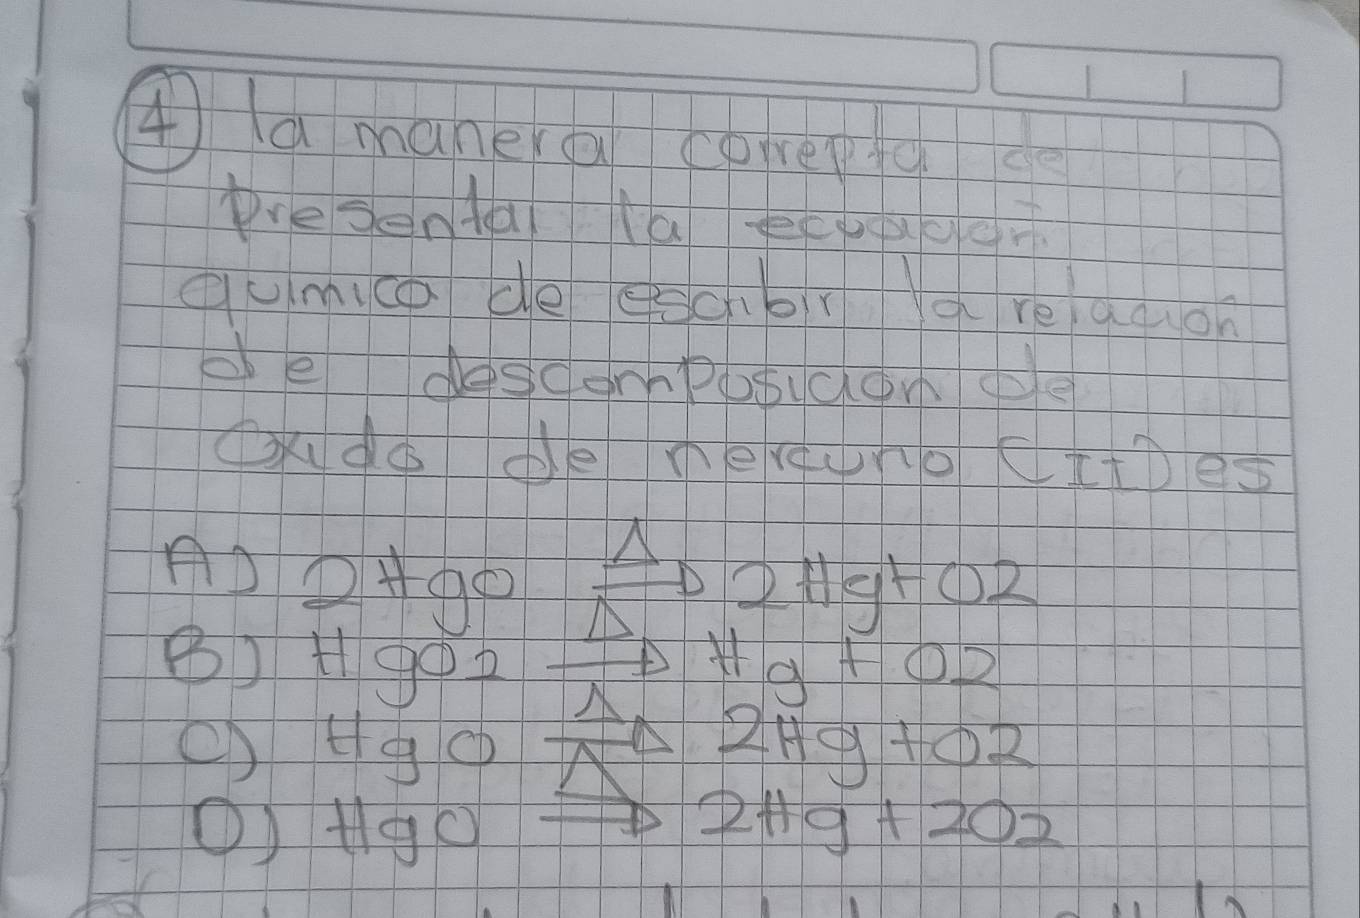 ④ la manera correpta de
presentar la ecuación
quimica de escribir la relación
de descomposición de
Oxido de mercurio (II) es
A) 2HgO △→ 2Hg + O2
B) HgO2 △→ Hg + O2
C) HgO △→ 2Hg + O2
D) HgO △→ 2Hg + 2O2